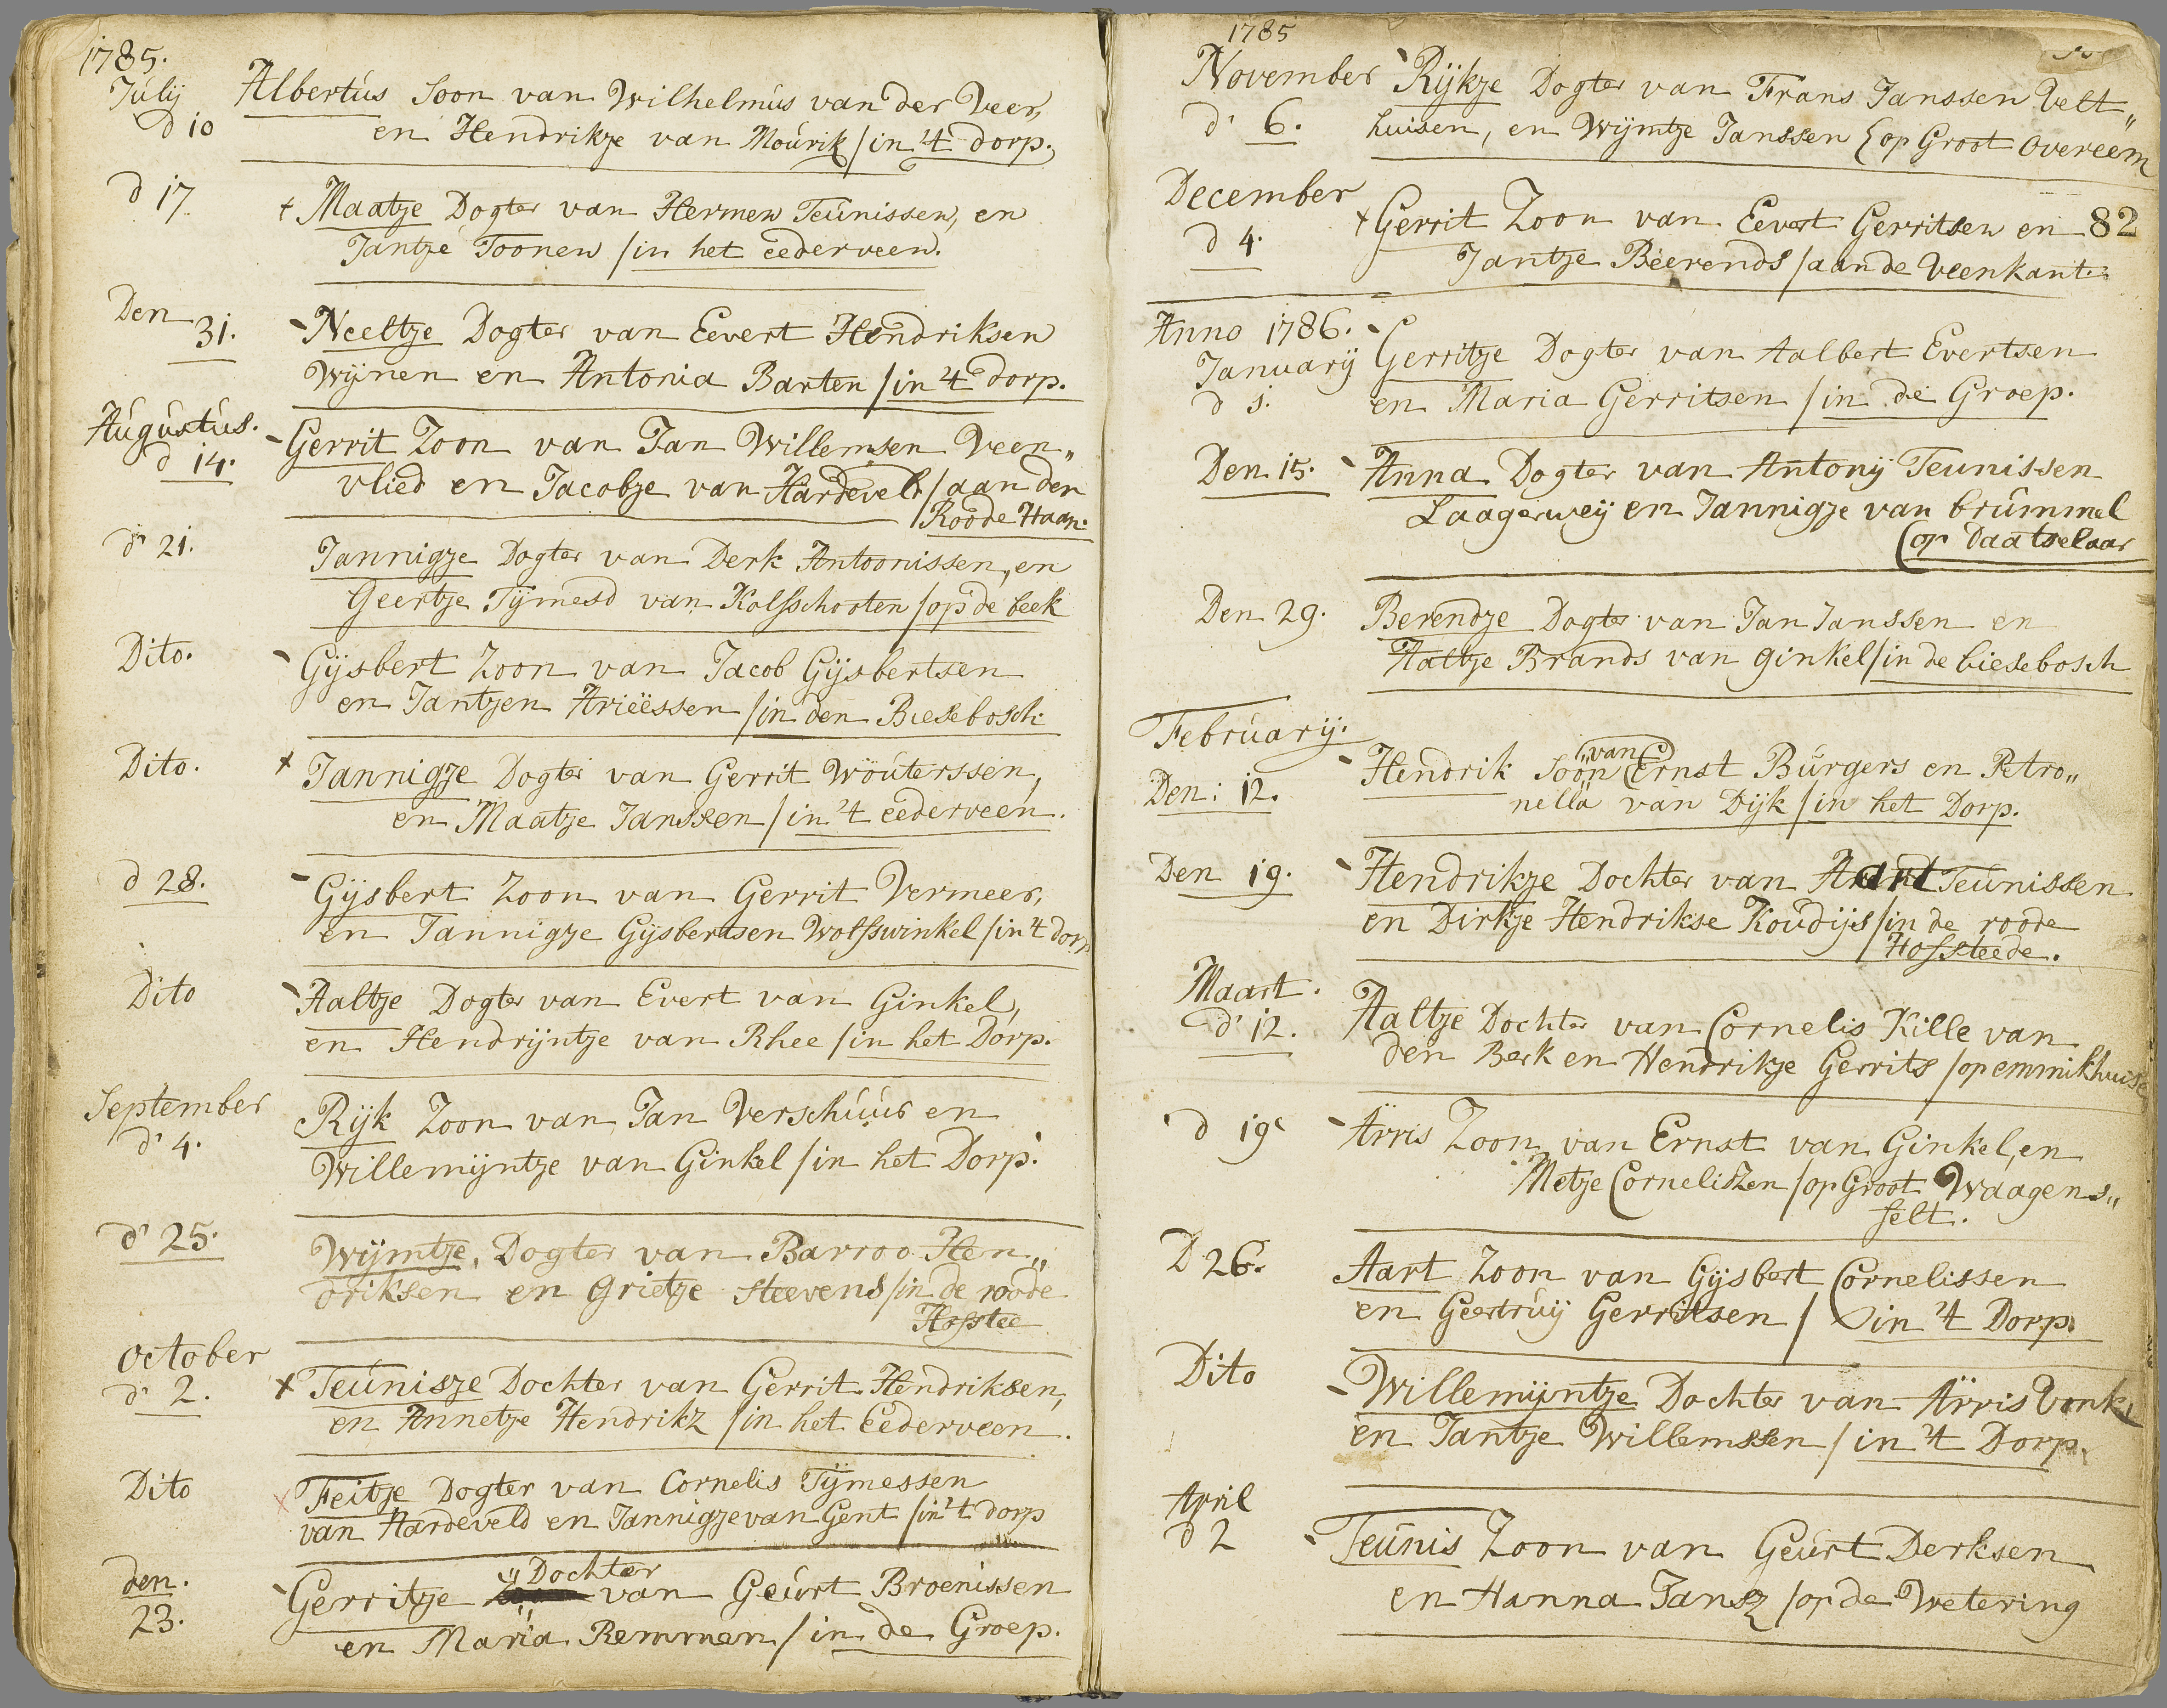 1785.
Julij
d 10
Albertus Soon van Wilhelmus van der Veer,
en Hendrikje van Mourik /in 't dorp.
d 17.
+ Maatje Dogter van Hermen Teunissen, en
Jantje Toonen /in het eederveen.
Den
31.
Neeltje Dogter van Eevert Hendriksen
Wijnen en Antonia Barten /in 't dorp.
Augustus.
d 14.
Gerrit Zoon van Jan Willemsen Veen„
vlied en Jacobje van Hardeveld /aan den
Roode Haan.
d' 21.
Jannigje Dogter van Derk Antoonissen, en
Geertje Tijmesd van Kolfschooten /op de beek
Dito.
Gijsbert Zoon van Jacob Gijsbertsen
en Jantjen Arieëssen /in den Biesebosch
Dito.
+ Jannigje Dogter van Gerrit Wouterssen,
en Maatje Janssen /in 't eederveen.
d 28.
Gijsbert Zoon van Gerrit Vermeer,
en Jannigje Gijsbertsen Wolfswinkel /in 't dorp
Dito
Aaltje Dogter van Evert van Ginkel,
en Hendrijntje van Rhee /in het Dorp.
September
d' 4.
Rijk Zoon van Jan Verschuur en
Willemijntje van Ginkel /in het Dorp.
d' 25.
Wijmtje, Dogter van Barroo Hen„
driksen en Grietje Steevens /in de roode
Hofstee
October
d' 2.
+ Teunisje Dochter van Gerrit Hendriksen,
en Annetje Hendrikz /in het Eederveen.
Dito
x Feitje Dogter van Cornelis Tijmessen
van Hardeveld en Jannigje van Gent /in 't dorp
den.
23.
Dochter
Gerritje van Geurt Broenissen
en Maria Remmen /in de Groep.
1785
November
d' 6.
Rijkje Dogter van Frans Janssen Velt„
huisen, en Wijmtje Janssen (op Groot Overeem
December
d 4.
+ Gerrit Zoon van Eevert Gerritsen en
82
Jantje Beerends /aan de Veenkant.
Anno 1786.
Januarij
d 1.
Gerritje Dogter van Aalbert Evertsen
en Maria Gerritsen /in de Groep.
Den 15.
Anna Dogter van Antonij Teunissen
Laagerweij en Jannigje van brummel
(op Daatselaar
Den 29.
Berendje Dogter van Jan Janssen en
Aaltje Brands van ginkel /in de biesebosch
Februarij.
Den: 12.
„van
Hendrik Soon Ernst Burgers en Petro„
nella van Dijk /in het Dorp.
Den 19.
Hendrikje Dochter van Aart Teunissen
en Dirkje Hendrikse Koudijs /in de roode
Hofsteede.
Maart.
d' 12.
Aaltje Dochter van Cornelis Kille van
den Berk en Hendrikje Gerrits /op emmikhuise
d 19
Arris Zoon van Ernst van Ginkel, en
Metje Cornelissen /op Groot Waagens„
felt.
D 26.
Aart Zoon van Gijsbert Cornelissen
en Geertruij Gerritsen / in 't Dorp.
Dito
Willemijntje Dochter van Arris Vonk,
en Jantje Willemssen /in 't Dorp.
April
d 2
Teunis Zoon van Geurt Derksen
en Hanna Jansz /op de Wetering